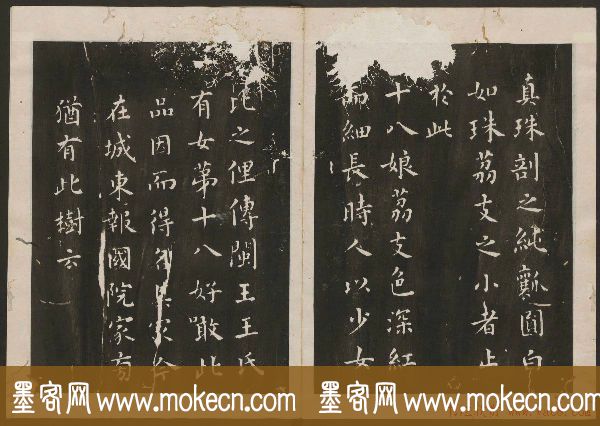 真珠剖之純瓤圓白
如珠荔支之小者止
於此
十八娘荔支色深紅
而細長時人以少女
比之俚傳閩王王氏
有女第十八好噉此
品因而得名其冢今
在城東報國院冢旁
猶有此樹云
墨客网 www.mokecn.com 墨客网 www.mokecn.com